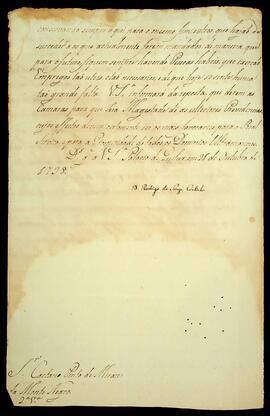 sempre aqui para o mesmo fim outros, que hajão de
succeder aos que actualmente forem mandados; de maneira, que
para o futuro, fiquem sempre havendo Pessoas habeis, que exerção
Empregos tão uteis e tão necessarios, e de que hoje se sente humã
tão grande falta. V. S.ª informará da reposta, que derem as
Camaras para que Sua Magestade dê as ulteriores Providencias
cujos effeitos devem certamente ser os mais para o Real
Serviço, e para a Prosperidade de todos os Dominios Ultramarinos.
D.s g.e a V. S.ª Palacio de Queluz em 31 de Outubro de
1798.
D. Rodrigo de Souza Coutinho
S.r Caetano Pinto de Miranda
Monte Negro.
2.ª Via